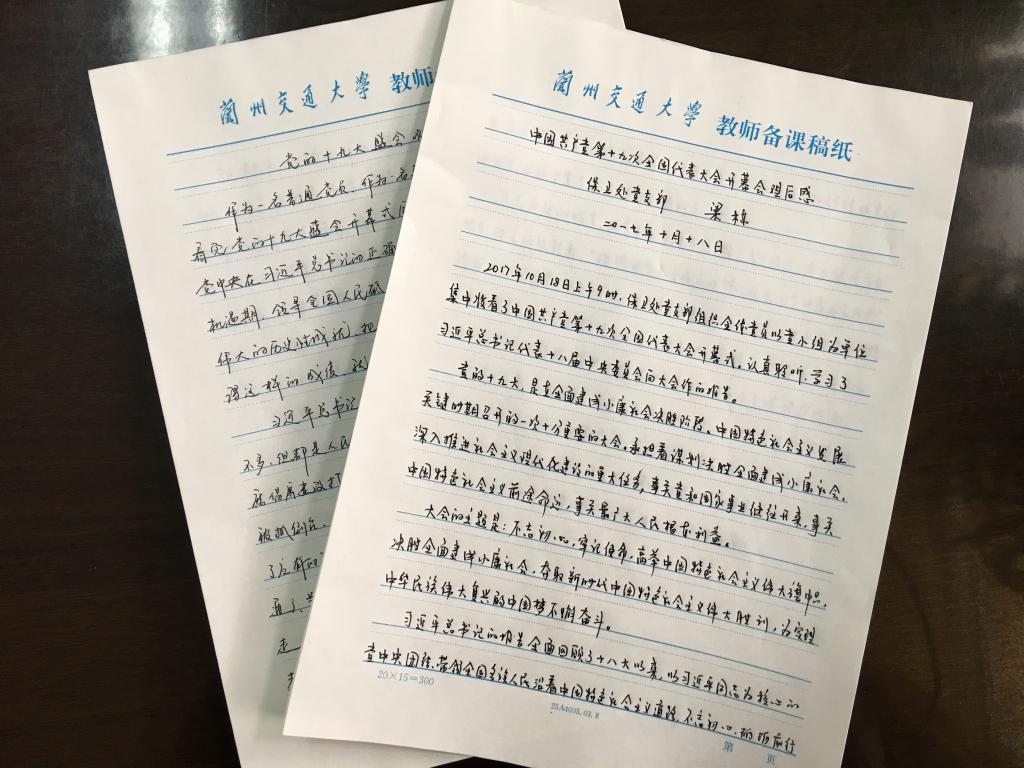 蘭州交通大學 教师
党的十九大盛会
作为一名普通党员 作为一名
看完党的十九大盛会开幕式
党中央在习近平总书记的正确
机遇期 领导全国人民砥
伟大的历史性成就,把
得这样的成绩
习近平总书记
不多,但却是人民
被抓倒台。
走
蘭州交通大學 教师备课稿纸
中国共产党第十九次全国代表大会开幕会观后感
保卫处党支部 梁栋
二〇一七年十月十八日
2017年10月18日上午9时,保卫处党支部组织全体党员以党小组为单位
集中收看了中国共产党第十九次全国代表大会开幕式。认真聆听、学习了
习近平总书记代表十八届中央委员会向大会作的报告。
党的十九大,是在全面建成小康社会决胜阶段、中国特色社会主义发展
关键时期召开的一次十分重要的大会。承担着谋划决胜全面建成小康社会、
深入推进社会主义现代化建设的重大任务,事关党和国家事业继往开来,事关
中国特色社会主义前途命运,事关最广大人民根本利益。
大会的主题是:不忘初心,牢记使命,高举中国特色社会主义伟大旗帜,
决胜全面建成小康社会,夺取新时代中国特色社会主义伟大胜利,为实现
中华民族伟大复兴的中国梦不懈奋斗。
习近平总书记的报告全面回顾了十八大以来,以习近平同志为核心的
党中央团结、带领全国各族人民沿着中国特色社会主义道路,不忘初心、砥砺前行
20×15=300
25A4005.03.8
第 页